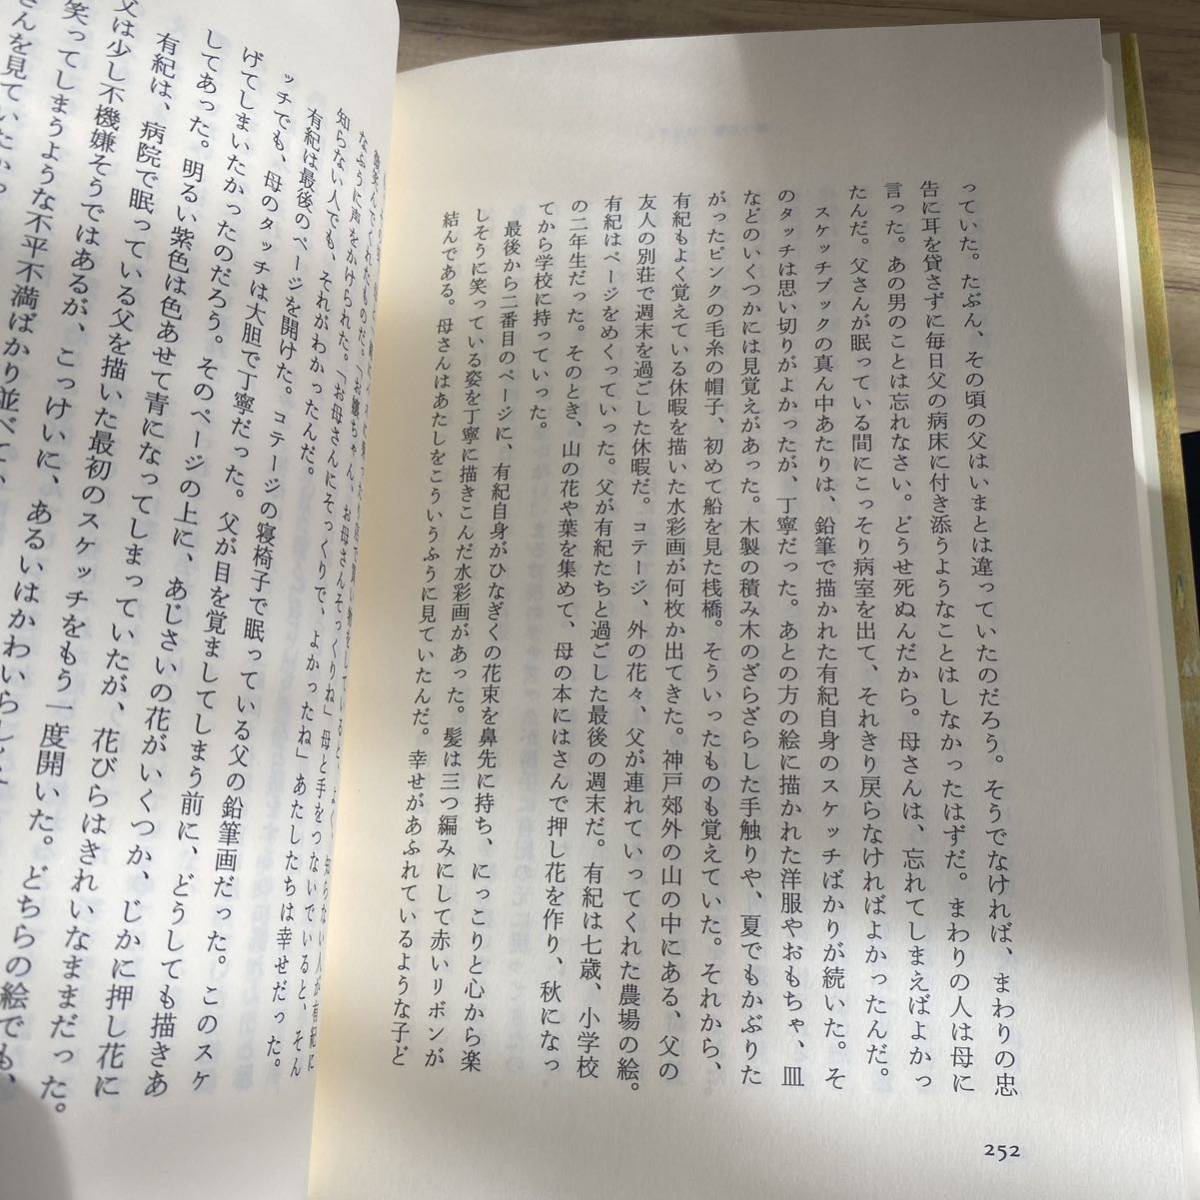 っていた。たぶん、その頃の父はいまとは違っていたのだろう。そうでなければ、まわりの忠
告に耳を貸さずに毎日父の病床に付き添うようなことはしなかったはずだ。まわりの人は母に
言った。あの男のことは忘れなさい。どうせ死ぬんだから。母さんは、忘れてしまえばよかっ
たんだ。父さんが眠っている間にこっそり病室を出て、それきり戻らなければよかったんだ。
スケッチブックの真ん中あたりは、鉛筆で描かれた有紀自身のスケッチばかりが続いた。そ
のタッチは思い切りがよかったが、丁寧だった。あとの方の絵に描かれた洋服やおもちゃ、皿
などのいくつかには見覚えがあった。木製の積み木のざらざらした手触りや、夏でもかぶりた
がったピンクの毛糸の帽子、初めて船を見た桟橋。そういったものも覚えていた。それから、
有紀もよく覚えている休暇を描いた水彩画が何枚か出てきた。神戸郊外の山の中にある、父の
友人の別荘で週末を過ごした休暇だ。コテージ、外の花々、父が連れていってくれた農場の絵。
有紀はページをめくっていった。父が有紀たちと過ごした最後の週末だ。有紀は七歳、小学校
の二年生だった。そのとき、山の花や葉を集めて、母の本にはさんで押し花を作り、秋になっ
てから学校に持っていった。
最後から二番目のページに、有紀自身がひなぎくの花束を鼻先に持ち、にっこりと心から楽
しそうに笑っている姿を丁寧に描きこんだ水彩画があった。髪は三つ編みにして赤いリボンが
結んである。母さんはあたしをこういうふうに見ていたんだ。幸せがあふれているような子ど
252
なふうに声をかけられた。「お母さんにそっくりで、よかったね」あたしたちは幸せだった。
知らない人でも、それがわかったんだ。
有紀は最後のページを開けた。コテージの寝椅子で眠っている父の鉛筆画だった。このスケ
ッチでも、母のタッチは大胆で丁寧だった。父が目を覚ましてしまう前に、どうしても描きあ
げてしまいたかったのだろう。そのページの上に、あじさいの花がいくつか、じかに押し花に
してあった。明るい紫色は色あせて青になってしまっていたが、花びらはきれいなままだった。
有紀は、病院で眠っている父を描いた最初のスケッチをもう一度開いた。どちらの絵でも、
父は少し不機嫌そうではあるが、こっけいに、あるいはかわいらし
笑ってしまうような不平不満ばかり並べて、
さんを見ていたか